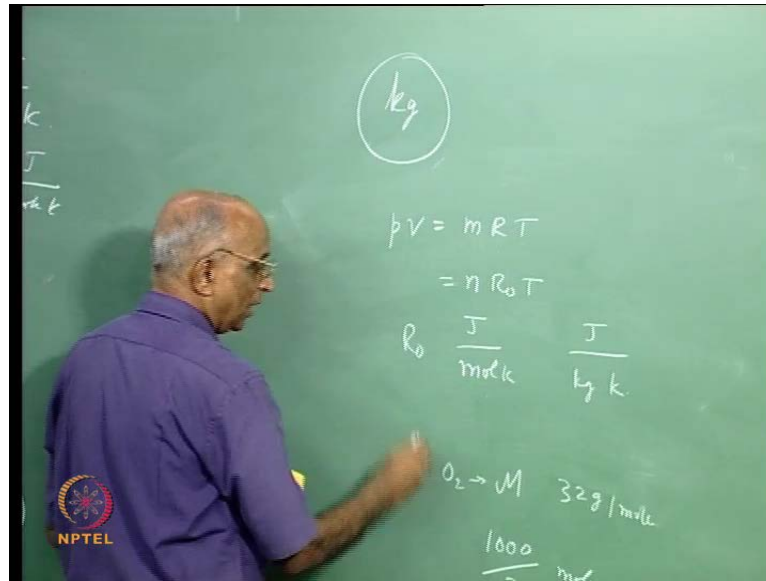 k
J
kg
pV = mRT
= n R₀ T
R₀ J/mol k J/kg k.
O₂ → M 32g/mole
1000
mol
NPTEL